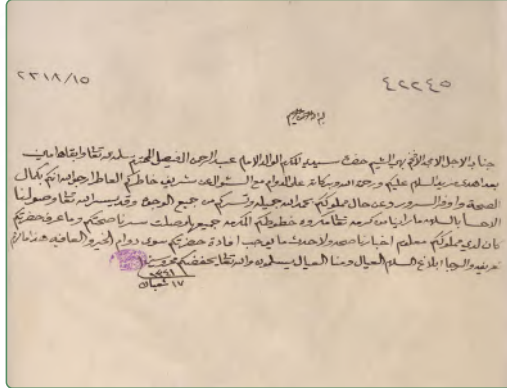 ٢٣١٨/١٥
٤٢٢٤٥
جناب الاجل الامجد الافخم بهي الشيم حضرت سيدي المكرم الوالد الامام عبد الرحمن الفيصل المحترم سلمه الله تعالى وابقاه امين
بعد اهدى مزيد السلام عليكم ورحمة الله وبركاته على الدوام مع السؤال عن شريف خاطركم العاطر ارجو الله انكم بكمال
الصحة وافر السرور وعن حال مملوككم بحمد الله جميله ونسركم من جميع الوجوه وقد يسر الله تعالى وصولنا
الاحسا بالسلامه من كرمه تعالى خطوطكم المكرمه جميعها وصلت سرنا صحتكم وما عرف حضرتكم
كان لدى مملوككم معلوم اخبارنا من حمد الله ما يوجب افادة حضرتكم سوى دوام الخير والعافيه هذا ما لزم
تعريفه والرجا ابلاغ السلام العيال ومنا العيال يسلمون والله تعالى يحفظكم
١٣٤١
١٧ شعبان